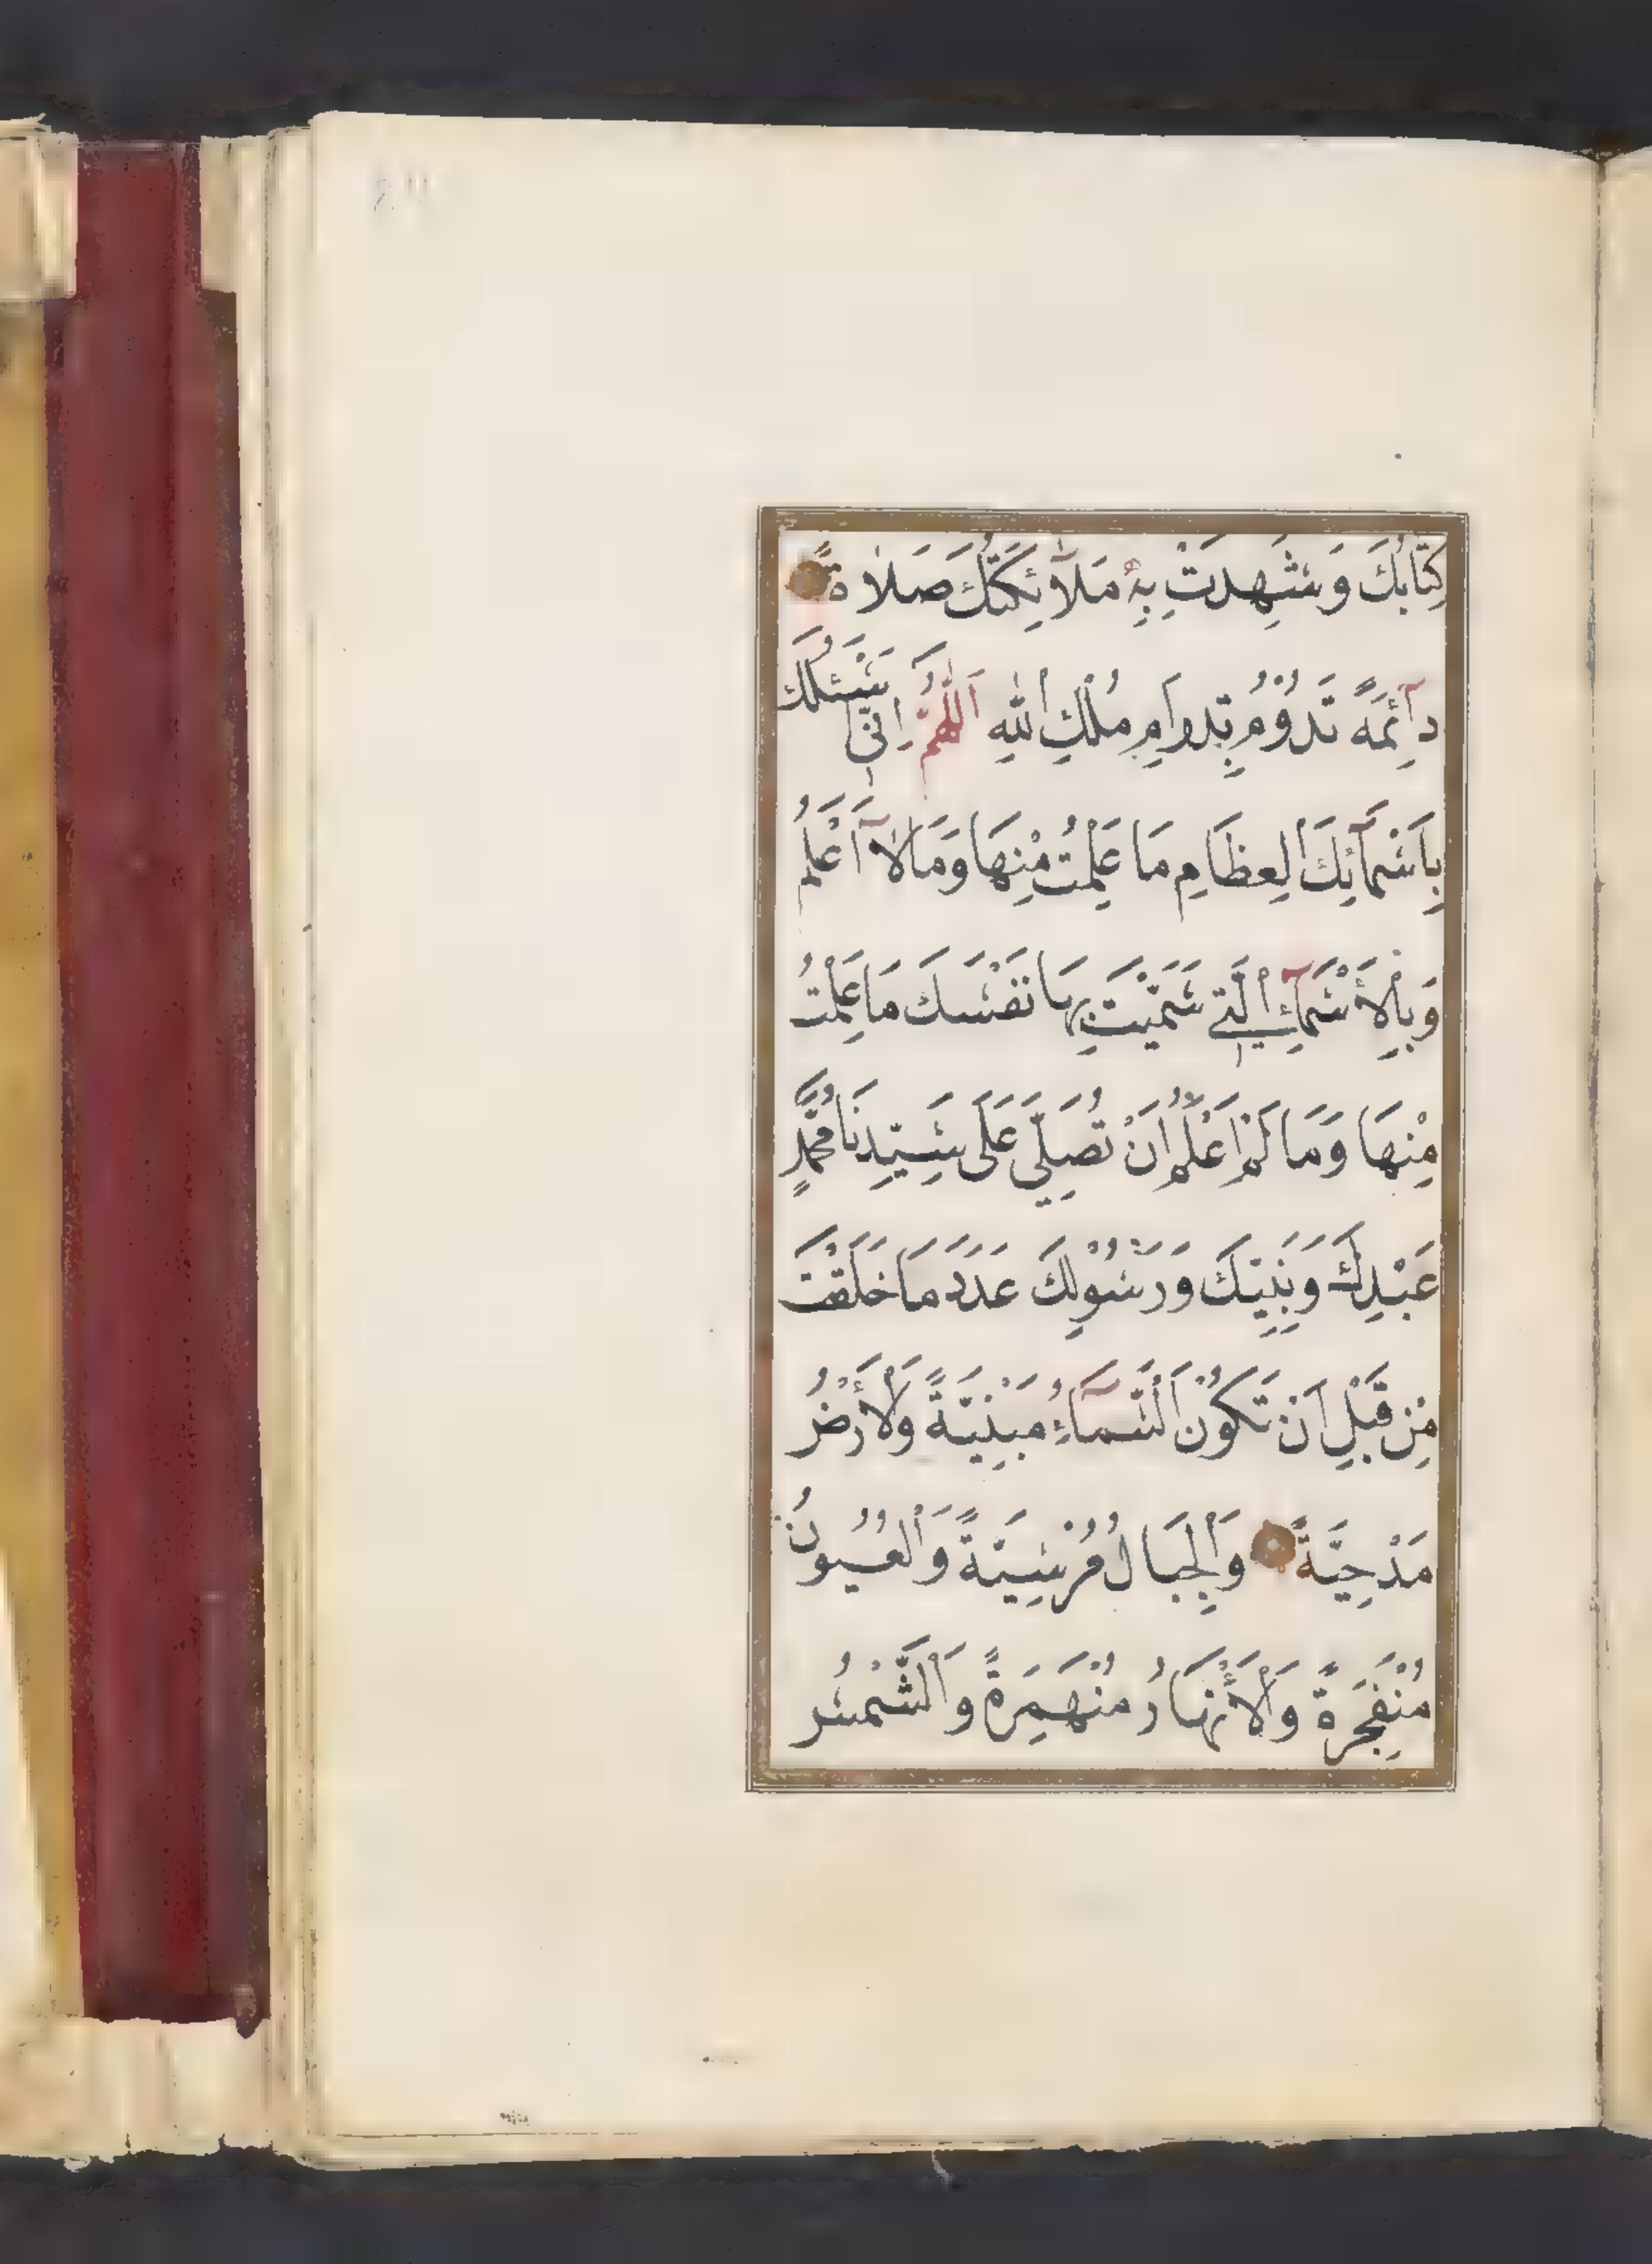 كِتَابُكَ وَشَهِدَتْ بِهِ مَلَآئِكَتُكَ صَلَاةً
دَآئِمَةً تَدُوْمُ بِدَوَامِ مُلْكِ اللهِ اَللّٰهُمَّ اِنِّي اَسْئَلُكَ
بِاَسْمَآئِكَ الْعِظَامِ مَا عَلِمْتُ مِنْهَا وَمَا لَآ اَعْلَمُ
وَبِالْأَسْمَآءِ الَّتِي سَمَّيْتَ بِهَا نَفْسَكَ مَا عَلِمْتُ
مِنْهَا وَمَا لَمْ اَعْلَمْ اَنْ تُصَلِّيَ عَلَى سَيِّدِنَا مُحَمَّدٍ
عَبْدِكَ وَنَبِيِّكَ وَرَسُوْلِكَ عَدَدَ مَا خَلَقْتَ
مِنْ قَبْلِ اَنْ تَكُوْنَ السَّمَآءُ مَبْنِيَّةً وَالْأَرْضُ
مَدْحِيَّةً وَالْجِبَالُ مُرْسِيَةً وَالْعُيُونُ
مُنْفَجِرَةً وَالْأَنْهَارُ مُنْهَمِرَةً وَالشَّمْسُ